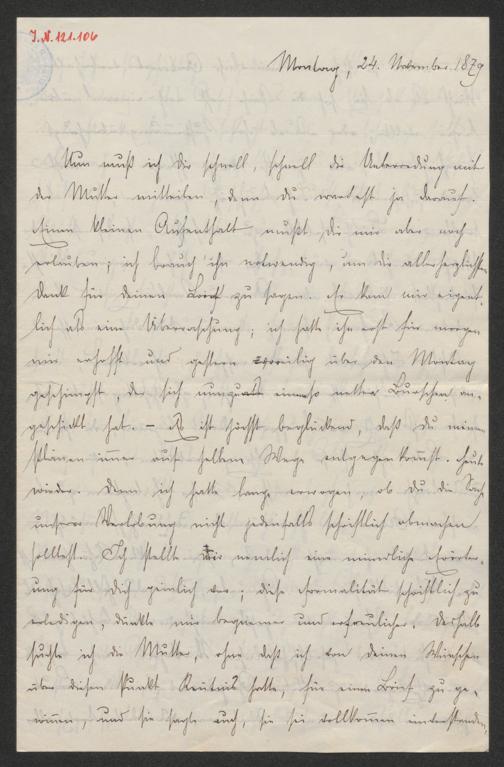 J.N. 121.106
Montag, 24. November 1879
Nun muß ich Dir schnell, schnell die Unterredung mit
der Mutter mitteilen, denn du wartest ja darauf.
Einen kleinen Aufenthalt mußt Du mir aber noch
erlauben; ich brauch ihn notwendig, um dir allerherzlichsten
Dank für deinen Brief zu sagen. Er kam mir eigent-
lich als eine Überraschung; ich hatte ihn erst für morgen
mir erhofft und gestern über den Montag
geschimpft, der sich nun als einen so netter Burschen an-
geschickt hat. – Es ist höchst beglückend, daß du meinen
Plänen immer auf halbem Wege entgegenkommst. Heute
wieder. Denn ich hatte lange erwogen, ob du die Sache
unserer Verlobung nicht jedenfalls schriftlich abmachen
solltest. Ich stellte mir nemlich eine mündliche Erörter-
ung für Dich peinlich vor; diese Formalität schriftlich zu
erledigen, dünkte mir bequemer und erfreulicher. Deshalb
suchte ich die Mutter, ohne daß ich von deinen Wünschen
über diesen Punkt Kentnis hatte, für einen Brief zu ge-
winnen, und sie sagte auch, sie sei vollkommen einverstanden,